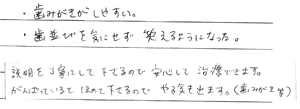 ・歯みがきがしやすい。
・歯並びを気にせず 笑えるようになった。
説明を丁寧にして下さるので 安心して 治療できます。
がんばっていると ほめて下さるので やる気も出ます。(歯みがき等)